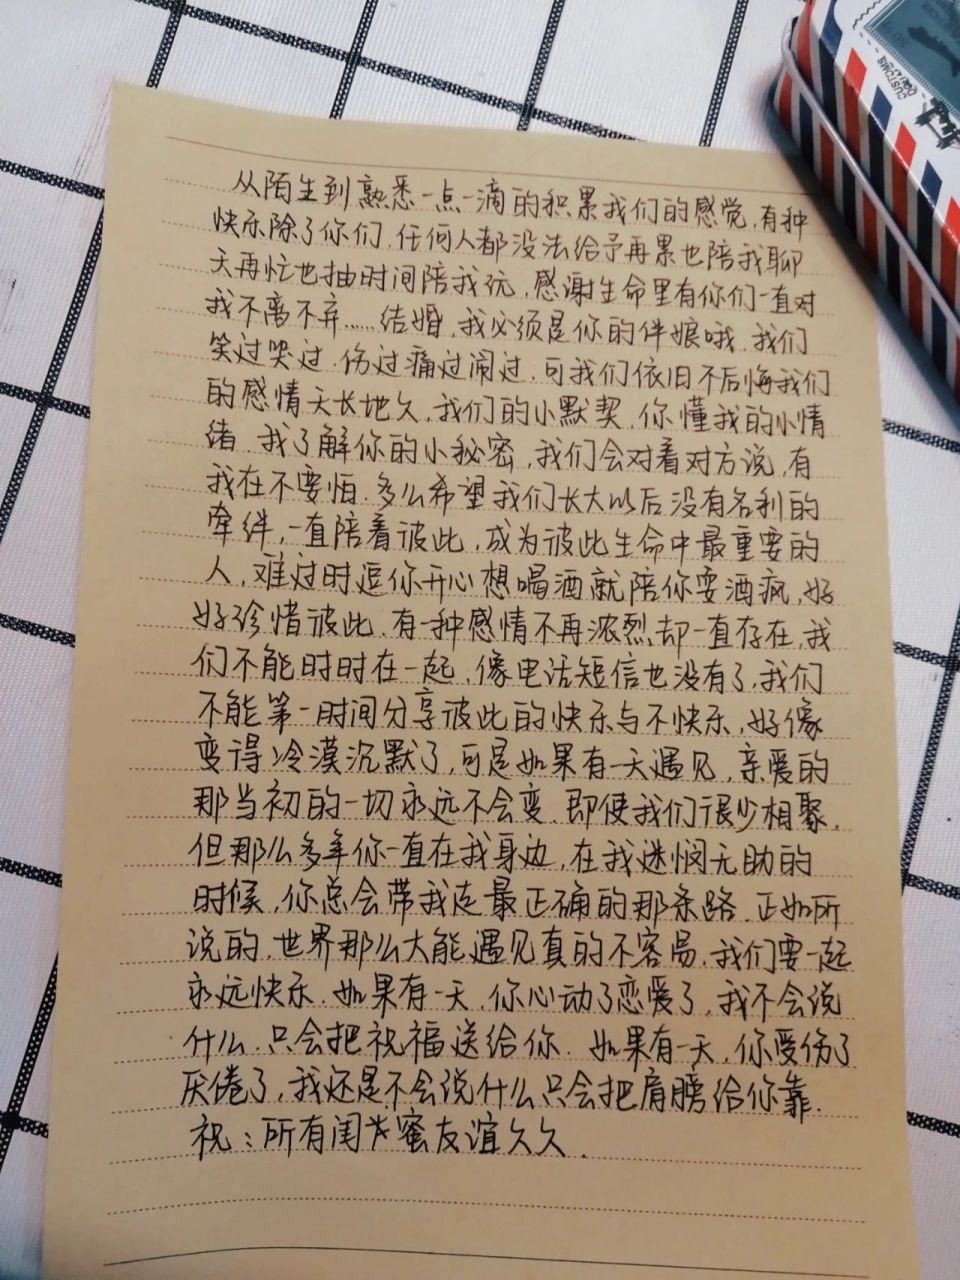 从陌生到熟悉一点一滴的积累我们的感觉,有种
快乐除了你们,任何人都没法给予再累也陪我聊
天再忙也抽时间陪我玩,感谢生命里有你们一直对
我不离不弃……结婚,我必须是你的伴娘哦.我们
笑过哭过.伤过痛过闹过,可我们依旧不后悔我们
的感情天长地久,我们的小默契,你懂我的小情
绪.我了解你的小秘密,我们会对着对方说,有
我在不要怕.多么希望我们长大以后没有名利的
牵绊,一直陪着彼此,成为彼此生命中最重要的
人,难过时逗你开心想喝酒就陪你耍酒疯,好
好珍惜彼此.有一种感情不再浓烈却一直存在,我
们不能时时在一起,像电话短信也没有了,我们
不能第一时间分享彼此的快乐与不快乐,好像
变得冷漠沉默了,可是如果有一天遇见,亲爱的
那当初的一切永远不会变.即使我们很少相聚,
但那么多年你一直在我身边,在我迷惘无助的
时候,你总会带我走最正确的那条路.正如所
说的,世界那么大能遇见真的不容易,我们要一起
永远快乐.如果有一天,你心动了恋爱了,我不会说
什么.只会把祝福送给你.如果有一天,你受伤了
厌倦了,我还是不会说什么只会把肩膀给你靠.
祝:所有闺蜜友谊久久.
CUSTOMS